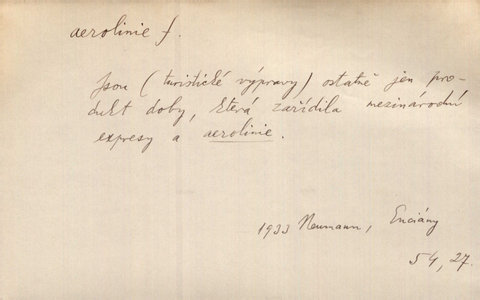 aerolinie f.
Jsou (turistické výpravy) ostatně jen pro-
dukt doby, která zařídila mezinárodní
expresy a aerolinie.
1933 Neumann, Enciány
54, 27.